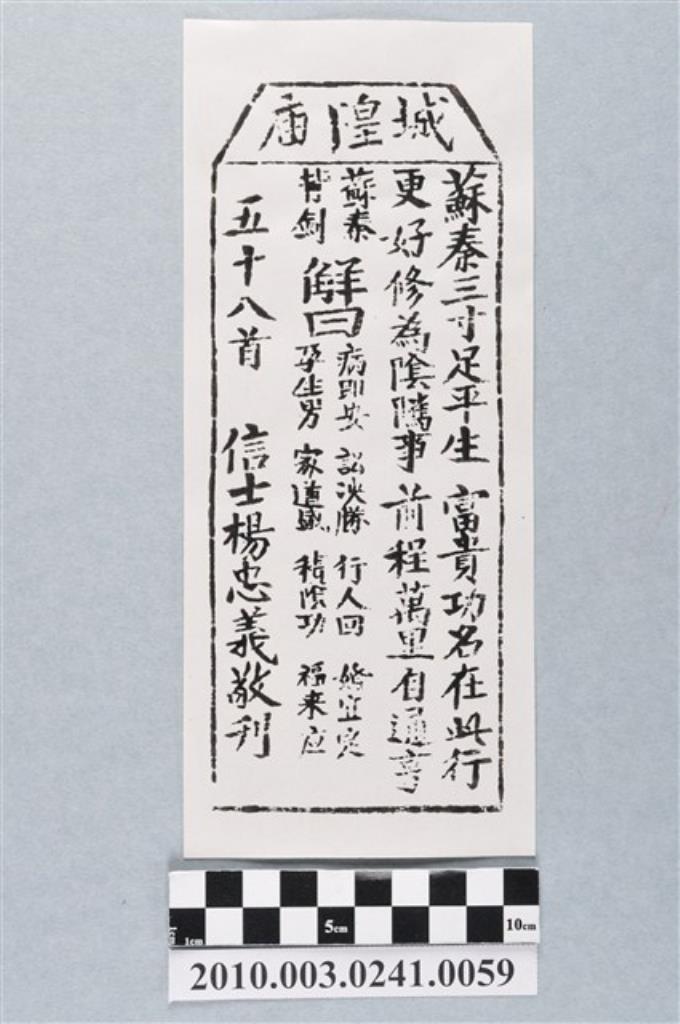 城隍庙
蘇秦三寸足平生 富貴功名在此行
更好修為陰隲事 前程萬里自通亨
蘇秦
背劍
解曰
病即安 訟決勝 行人回 婚宜定
孕生男 家道盛 積陰功 福來应
五十八首 信士楊忠義敬刊
1cm 5cm 10cm
2010.003.0241.0059